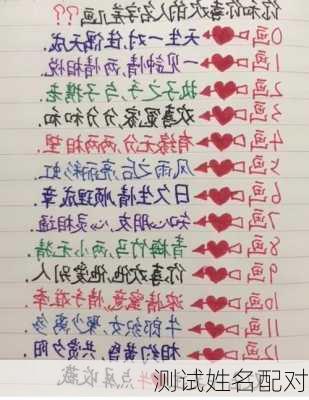 你和你喜欢的人名字差几画??
0画 天生一对,佳偶天成.
1画 一见钟情,两情相悦.
2画 执子之手,与子携老.
3画 欢喜冤家,分分和和.
4画 有缘无分,两两相望.
5画 风雨之后,亮丽彩虹.
6画 日久生情,顺理成章.
7画 知心朋友,心灵相通.
8画 青梅竹马,两小无猜.
9画 你喜欢他,他爱别人
10画 浓情蜜意,
11画 牛郎织女,聚少离多
12画 相约黄昏,共赏夕阳
点屏收藏
测试姓名配对